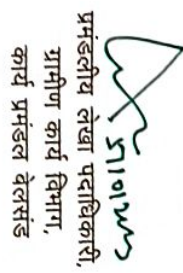 प्रमंडलीय लेखा पदाधिकारी,
ग्रामीण कार्य विभाग,
कार्य प्रमंडल बेलसंड